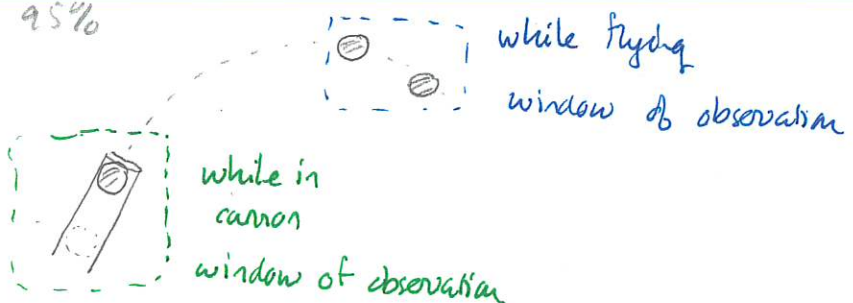 95%
while flying
window of observation
while in
cannon
window of observation